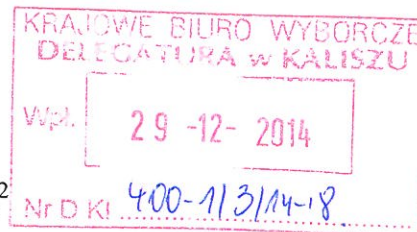 KRAJOWE BIURO WYBORCZE
DELEGATURA w KALISZU
Wpł.
29 -12- 2014
2
Nr D Kl 400-1/3/14-18